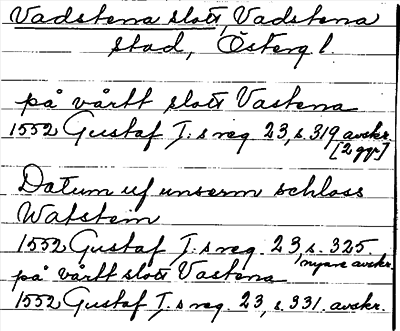 Vadstena slott, Vadstena
stad, Österg l.
på vårtt slott Vastena
1552 Gustaf I:s reg. 23, s. 319 avskr.
[2 ggr]
Datum uf unserm schloss
Watstein
1552 Gustaf I:s reg. 23, s. 325.
nyare avskr.
på vårtt slott Vastena
1552 Gustaf I:s reg. 23, s. 331. avskr.